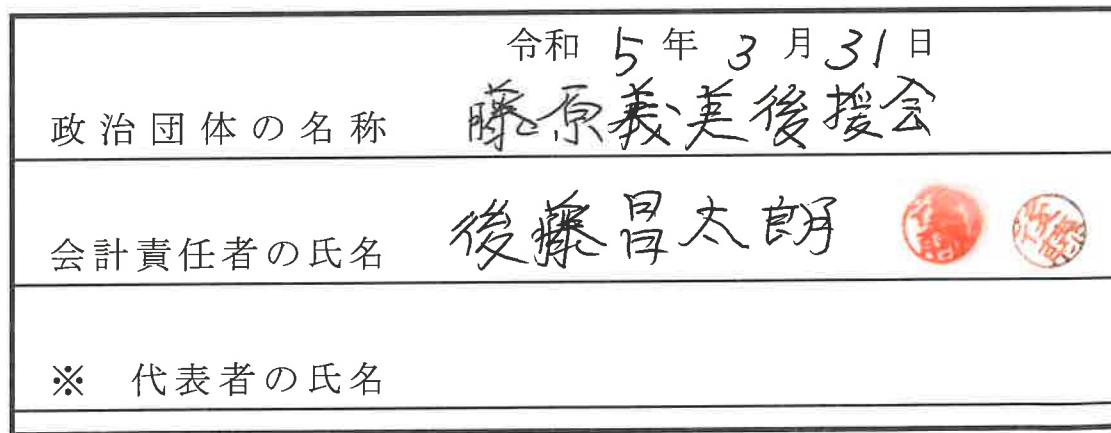 令和 5 年 3 月 31 日
政治団体の名称 藤原義美後援会
会計責任者の氏名 後藤昌太朗
※ 代表者の氏名